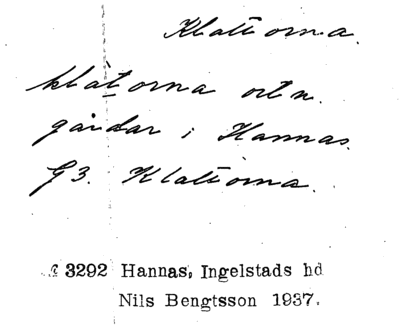 Klattorna.
klåtorna ort n.
gårdar i Hannas.
G3. Klattorna.
3292 Hannas, Ingelstads hd
Nils Bengtsson 1937.